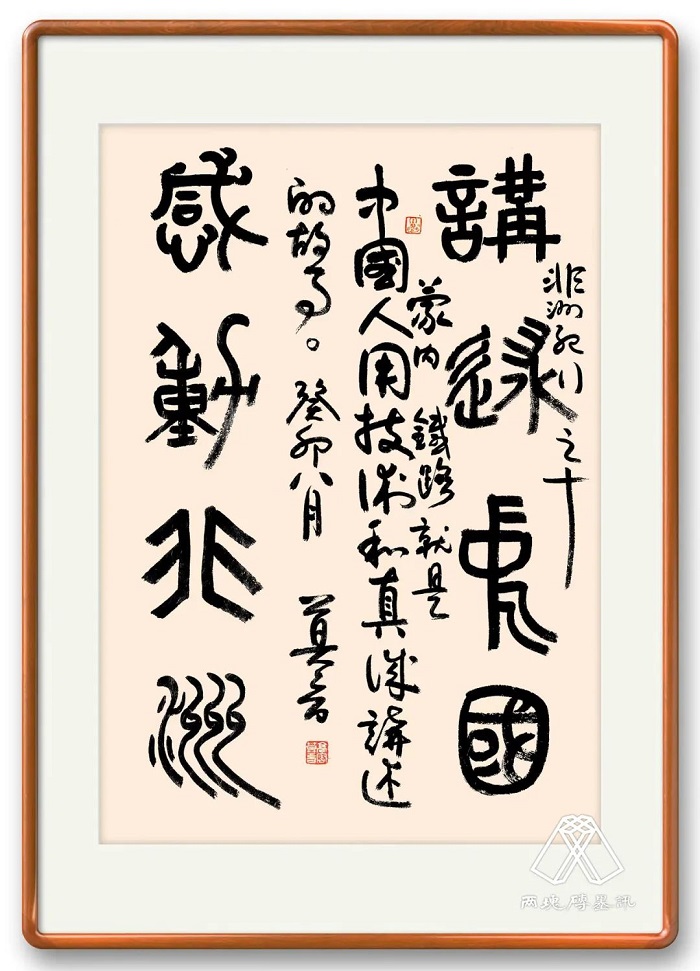 講述中國
感動非洲
非洲紀行之十
蒙内鐵路就是
中國人用技術和真誠講述
的故事。癸卯八月 莫言
两塊磚墨訊